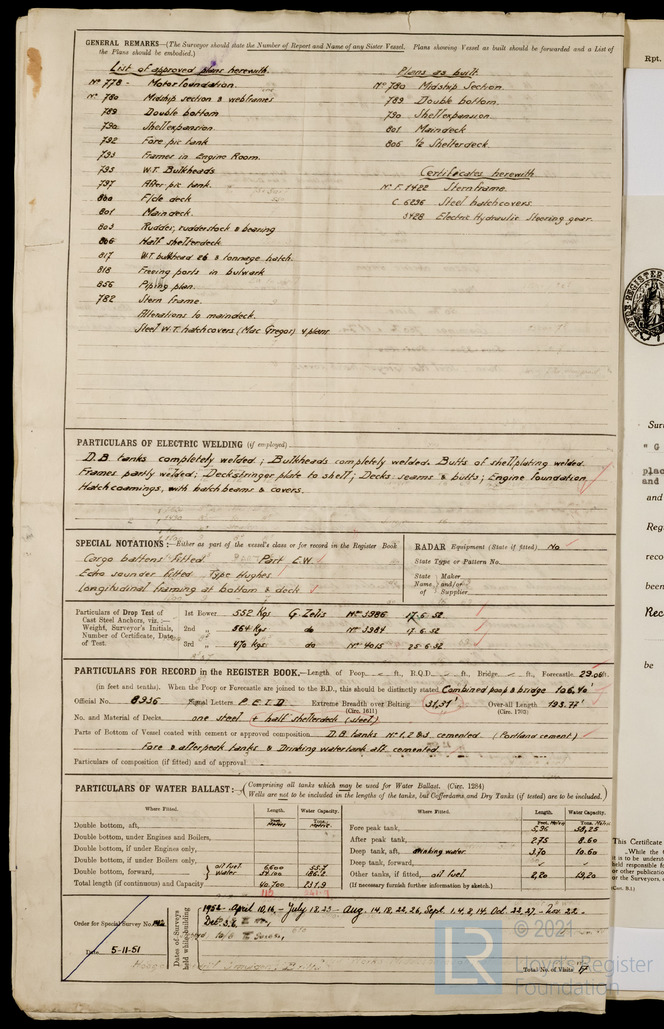 GENERAL REMARKS—(The Surveyor should state the Number of Report and Name of any Sister Vessel. Plans showing Vessel as built should be forwarded and a List of
the Plans should be embodied.)
List of approved plans herewith.
Nº 778 - Motorfoundation.
Nº 780 Midship section & webframes
789 Double bottom
790 Shellexpansion
792 Fore pic tank
793 Frames in Engine Room.
795 W.T. Bulkheads
797 After pic tank.
800 F'cle deck
801 Maindeck.
803 Rudder, rudderstock & bearing
806 Half shelterdeck
817 W.T. bulkhead 26 & tonnage hatch.
818 Freeing ports in bulwark
856 Piping plan.
782 Stern frame.
Alterations to maindeck.
Steel W.T. hatchcovers (Mac Gregor) 4 plans
Plans as built
Nº 780 Midship Section.
789 Double bottom.
790 Shellexpansion.
801 Maindeck
806 ½ Shelterdeck.
Certificates herewith
Nº F. 1422 Sternframe.
C. 6296 Steel hatchcovers.
3428 Electric Hydraulic Steering gear.
PARTICULARS OF ELECTRIC WELDING (if employed)
D.B tanks completely welded; Bulkheads completely welded. Butts of shellplating welded.
Frames partly welded; Deckstringer plate to shell; Decks: seams & butts; Engine foundation,
Hatchcoamings, with hatchbeams & covers.
SPECIAL NOTATIONS:—Either as part of the vessel's class or for record in the Register Book
Cargo battens fitted Part E.W.
Echo sounder fitted Type Hughes
Longitudinal framing at bottom & deck
RADAR Equipment (State if fitted) No
State Type or Pattern No.
State Maker
Name and/or
of Supplier
Particulars of Drop Test of
Cast Steel Anchors, viz.:—
Weight, Surveyor's Initials,
Number of Certificate, Date
of Test.
1st Bower 552 Kgs G. Zelis Nº 3986 17-6-52
2nd " 564 Kgs do Nº 3984 17-6-52
3rd " 470 kgs do Nº 4015 25-6-52
PARTICULARS FOR RECORD in the REGISTER BOOK.—Length of Poop - ft., R.Q.D. - ft., Bridge - ft., Forecastle 29.06 ft.
(in feet and tenths). When the Poop or Forecastle are joined to the B.D., this should be distinctly stated Combined poop & bridge 106.40'
Official No. 8936 Signal Letters P.E.I.D. Extreme Breadth over Belting 31,51' Over-all Length 193.77'
(Circ. 1611) (Circ. 1703)
No. and Material of Decks one steel + half shelterdeck (steel)
Parts of Bottom of Vessel coated with cement or approved composition D.B tanks Nº 1, 2 & 3 cemented (Portland cement)
Fore & afterpeak tanks & Drinking watertank aft cemented.
Particulars of composition (if fitted) and of approval
PARTICULARS OF WATER BALLAST:—(Comprising all tanks which may be used for Water Ballast. (Circ. 1284)
Wells are not to be included in the lengths of the tanks, but Cofferdams and Dry Tanks (if tested) are to be included.)
Where Fitted. Length. Water Capacity. Where Fitted. Length. Water Capacity.
Double bottom, aft,
Double bottom, under Engines and Boilers,
Double bottom, if under Engines only,
Double bottom, if under Boilers only,
Double bottom, forward, oil fuel 6,600 55.7
water 34.100 186.2
Total length (if continuous) and Capacity 40.700 241.9
Fore peak tank, 5,96 58,25
After peak tank, 2.75 8.60
Deep tank, aft, drinking water 3,70 10.60
Deep tank, forward,
Other tanks, if fitted, oil fuel 2,20 19,20
(If necessary furnish further information by sketch.)
Order for Special Survey No.
Date 5-11-51
Dates of Surveys
held while building
1952 - April 10, 16, - July 18. 23 - Aug. 14, 18, 22, 26, Sept. 1, 4, 8, 14, Oct. 22, 27, - Nov. 22 -
Total No. of Visits 17
© 2021
LR
Lloyd's Register
Foundation
Rpt.
Sur
" G
plac
and
and
Reg
reco
been
Rec
be
This Certificate